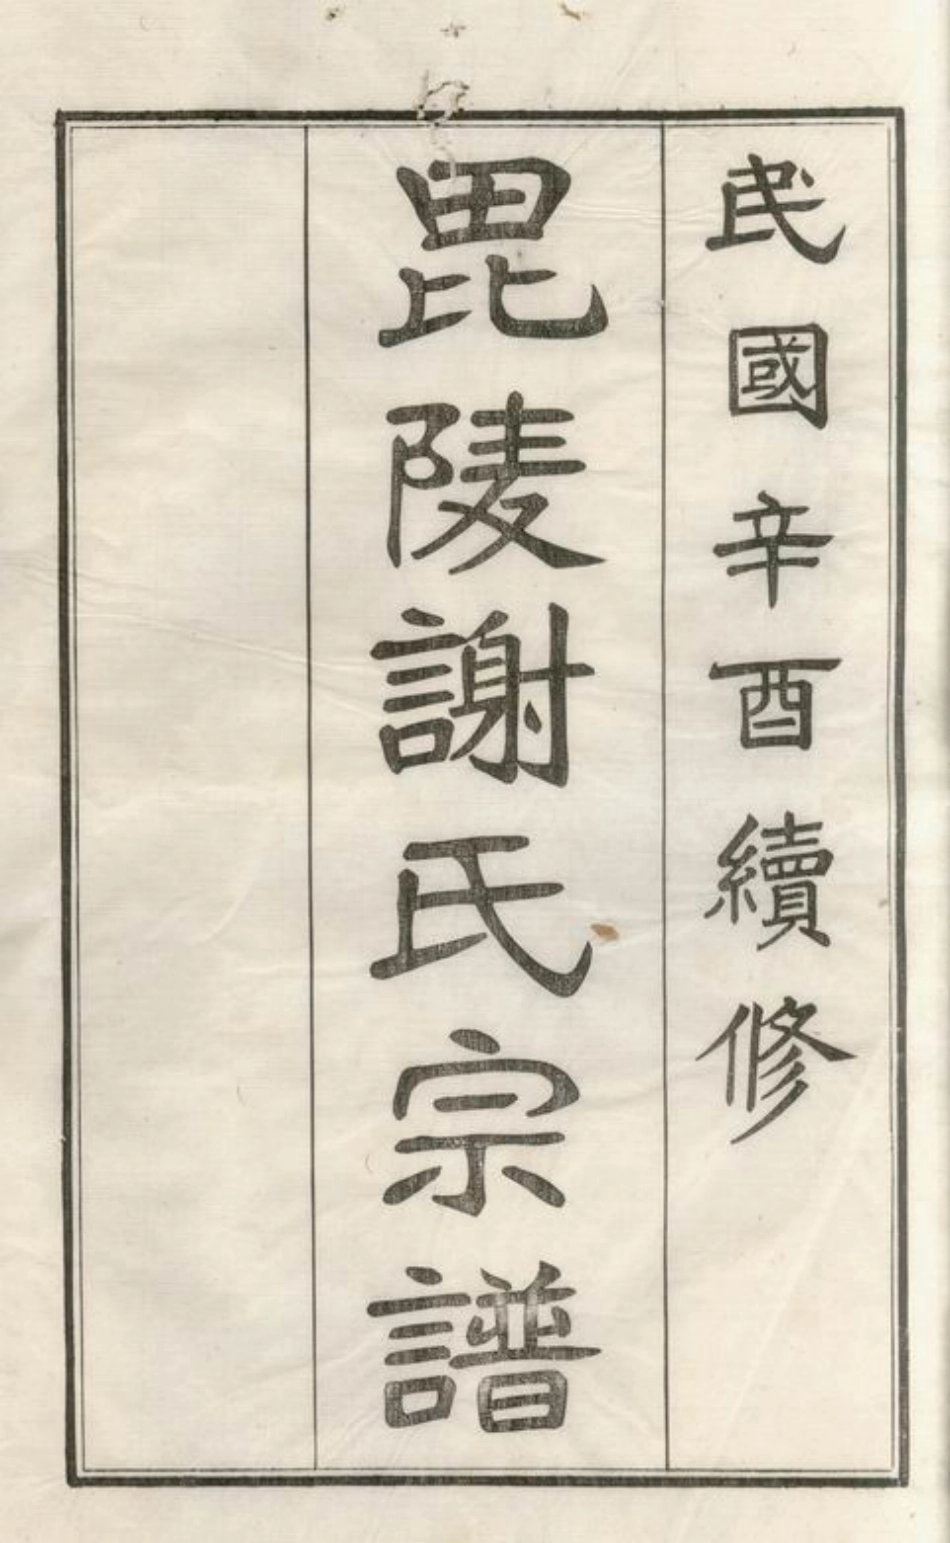 民國辛酉續修
毘陵謝氏宗譜